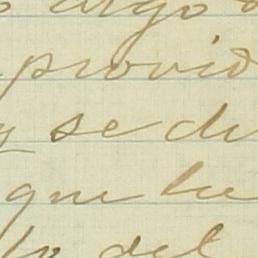 algo
provid
y se di
que la
lo del